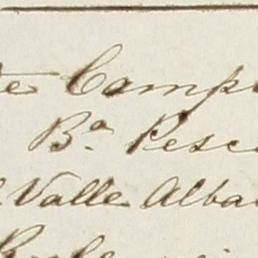 te Camp
Bª Pesc
Valle Alba